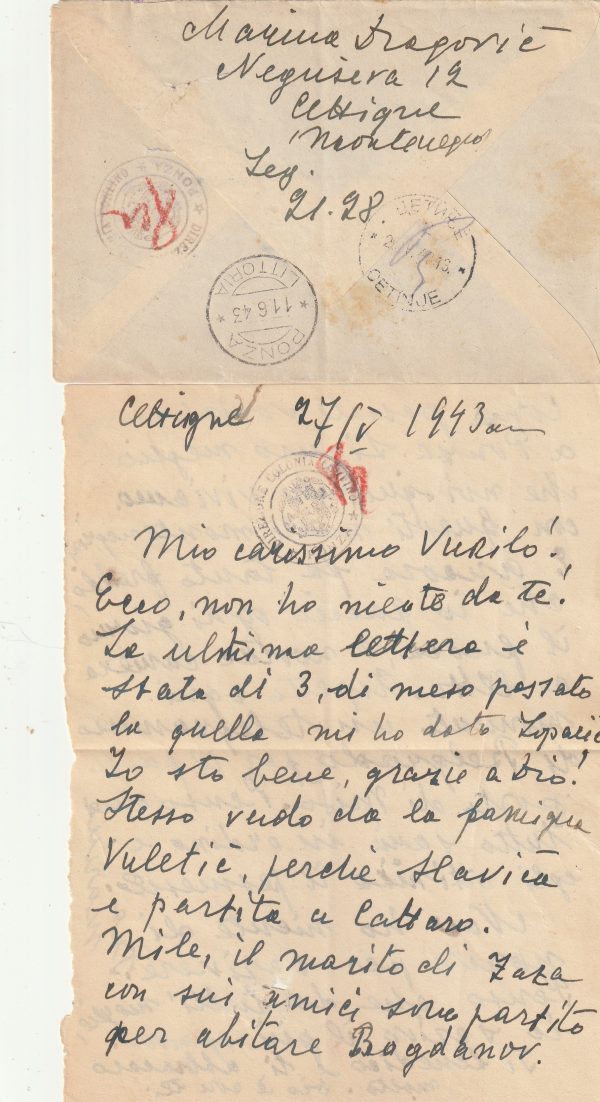 Marina Dragović
Negusseva 12
Cettigne
Montenegro
21.28.
CETINJE
PONZA
LITTORIA
11.6.43
Cettigne 27/V 1943
DIREZIONE COLONIA CONFINO
Mio carissimo Vukilo!
Ecco, non ho niente da te!
La ultima lettera è
stata di 3, di meso passato
la quella mi ho dato Loparić
Io sto bene, grazie a Dio!
Stesso vedo da la famiglia
Vuletić, perchè Slavica
e partita a Cattaro.
Mile, il marito di Zaza
con sui amici sono partito
per abitare Bogdanov.